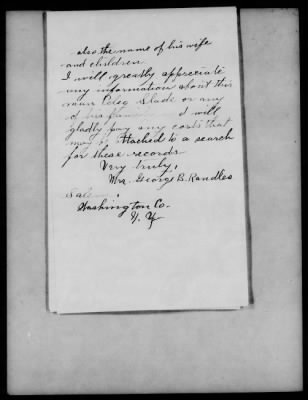 also the name of his wife
and children.
I will greatly appreciate
any information about this
man Peleg Slade or any
of his fam I will
gladly pay any costs that
may be attached to a search
for these records
Very truly,
Mrs. George B. Randles
Salem,
Washington Co.
N. Y.